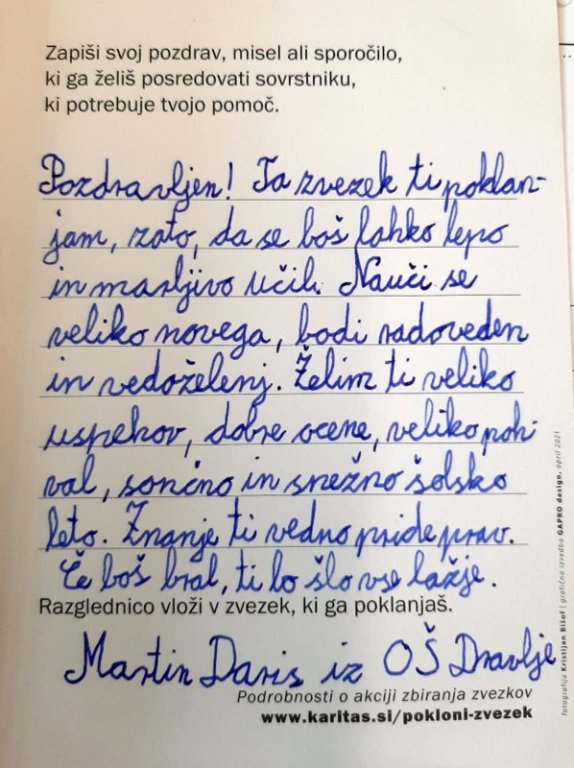 Zapiši svoj pozdrav, misel ali sporočilo,
ki ga želiš posredovati sovrstniku,
ki potrebuje tvojo pomoč.
Pozdravljen! Ta zvezek ti poklan-
jam, zato, da se boš lahko lepo
in marljivo učil. Nauči se
veliko novega, bodi radoveden
in vedoželenj. Želim ti veliko
uspehov, dobre ocene, veliko poh-
val, sončno in snežno šolsko
leto. Znanje ti vedno pride prav.
Če boš bral, ti bo šlo vse lažje.
Razglednico vloži v zvezek, ki ga poklanjaš.
Martin Daris iz OŠ Dravlje
Podrobnosti o akciji zbiranja zvezkov
www.karitas.si/pokloni-zvezek
fotografija Kristijan Bišof | grafična izvedba GAPRO design, april 2021